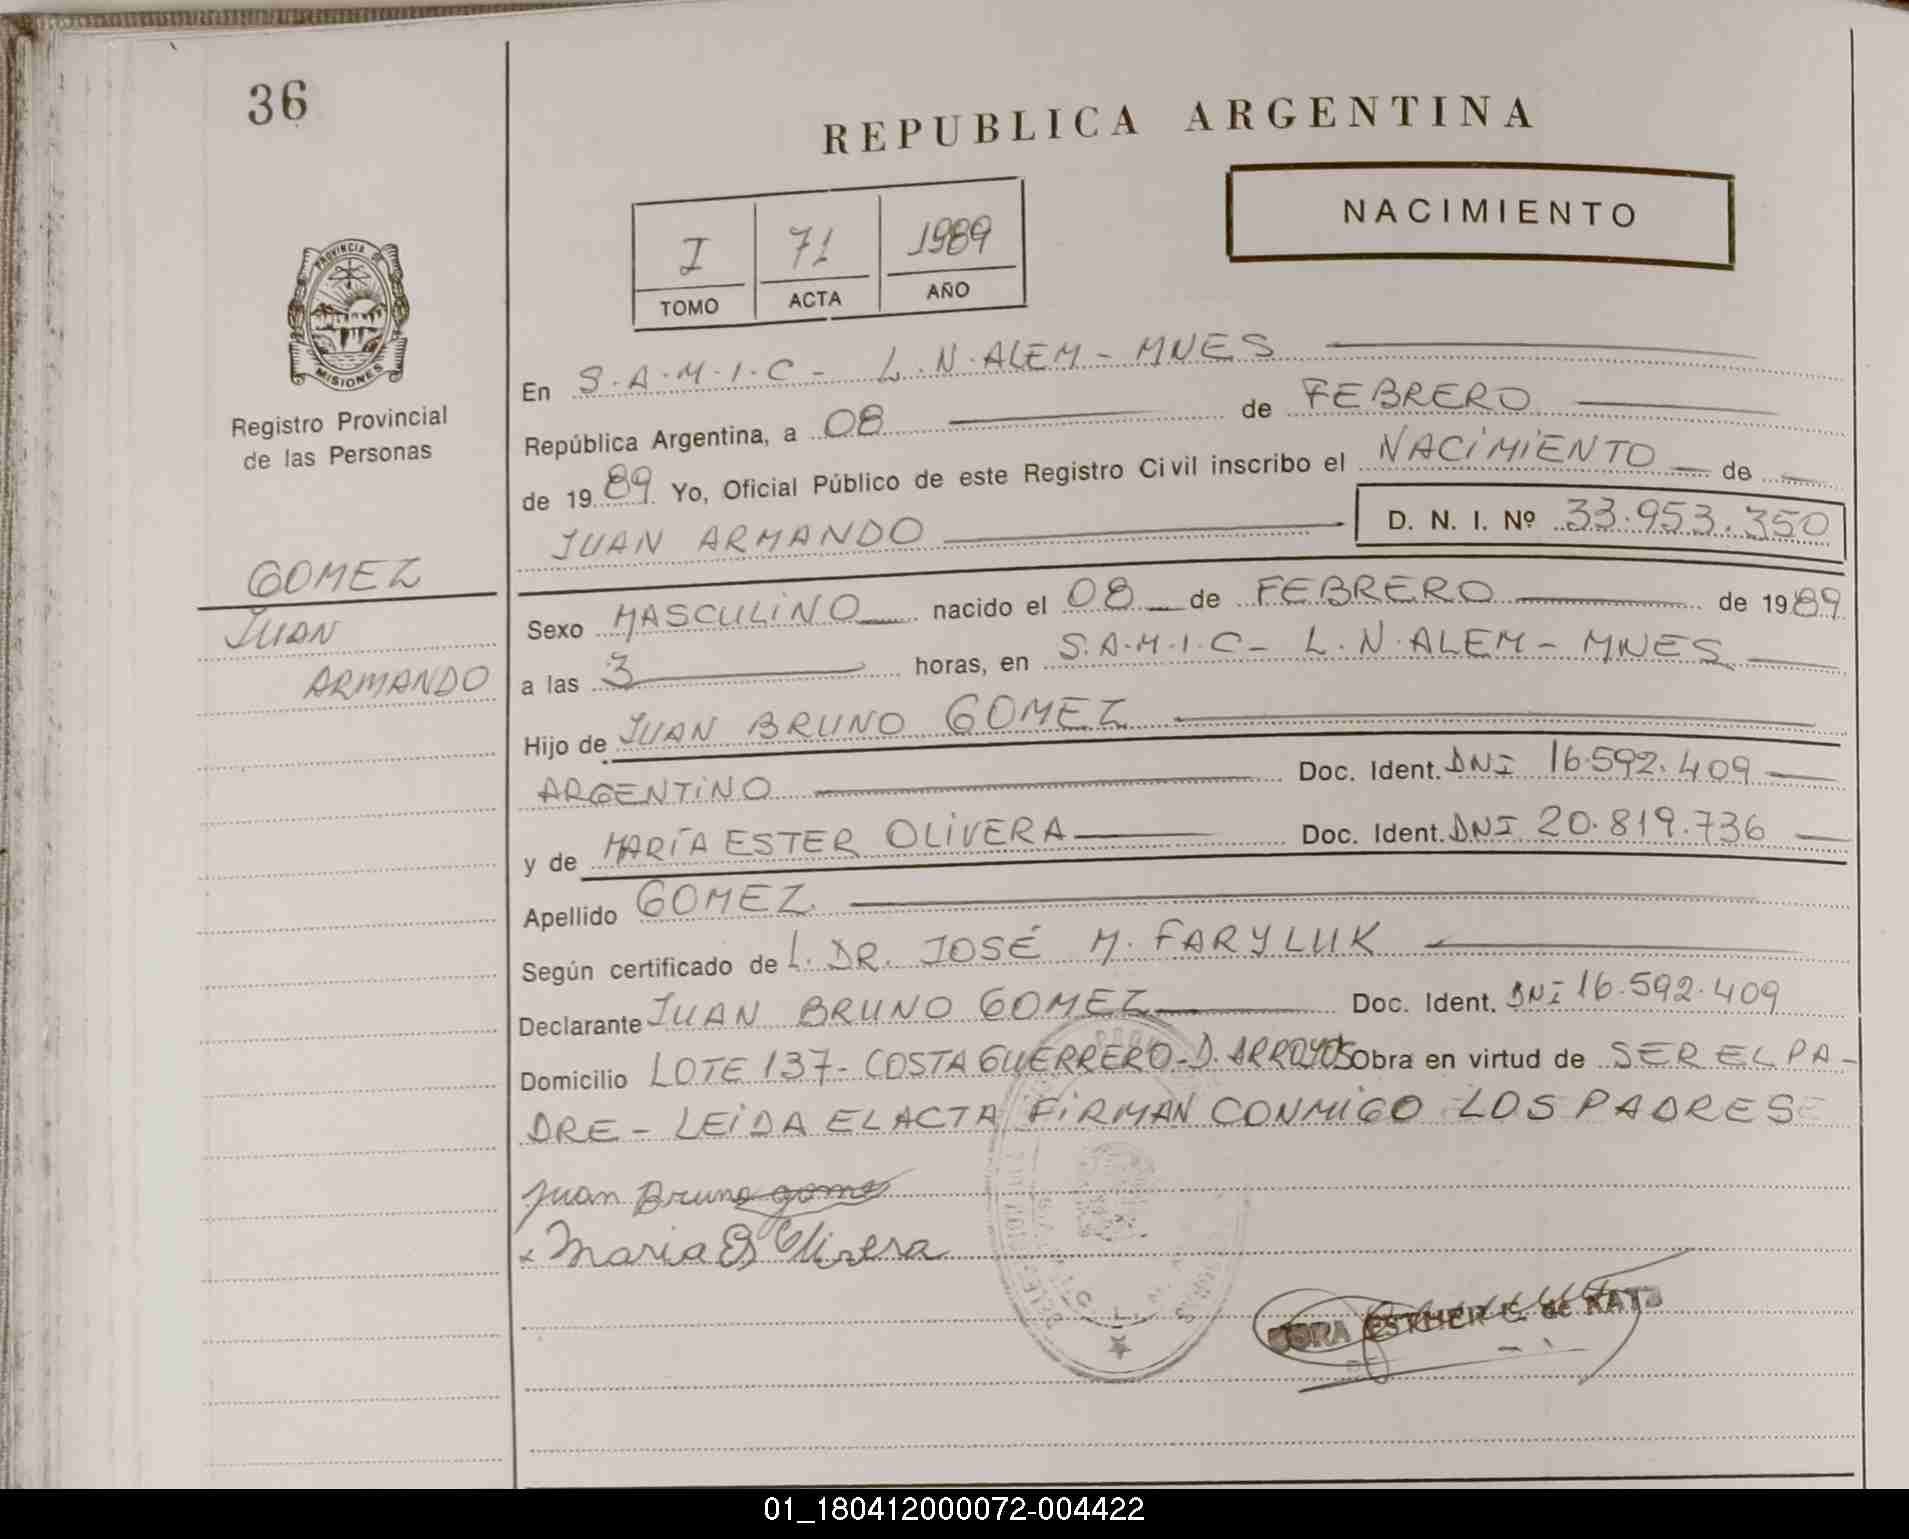 36
REPUBLICA ARGENTINA
NACIMIENTO
I 71 1989
TOMO ACTA AÑO
PROVINCIA DE
MISIONES
Registro Provincial
de las Personas
GOMEZ
JUAN
ARMANDO
En S.A.M.I.C - L.N.ALEM - MNES
República Argentina, a 08 de FEBRERO
de 1989. Yo, Oficial Público de este Registro Civil inscribo el NACIMIENTO de
JUAN ARMANDO D. N. I. Nº 33.953.350
Sexo MASCULINO nacido el 08 de FEBRERO de 1989
a las 3 horas, en S.A.M.I.C - L.N.ALEM - MNES
Hijo de JUAN BRUNO GOMEZ
ARGENTINO Doc. Ident. DNI 16.592.409
y de MARÍA ESTER OLIVERA Doc. Ident. DNI 20.819.736
Apellido GOMEZ
Según certificado de L. DR. JOSÉ M. FARYLUK
Declarante JUAN BRUNO GOMEZ Doc. Ident. DNI 16.592.409
Domicilio LOTE 137 - COSTA GUERRERO - D. ARROYOS Obra en virtud de SER EL PA-
DRE - LEIDA EL ACTA FIRMAN CONMIGO LOS PADRES
Juan Bruno gome
x Maria E Olivera
ESTHER de
01_180412000072-004422